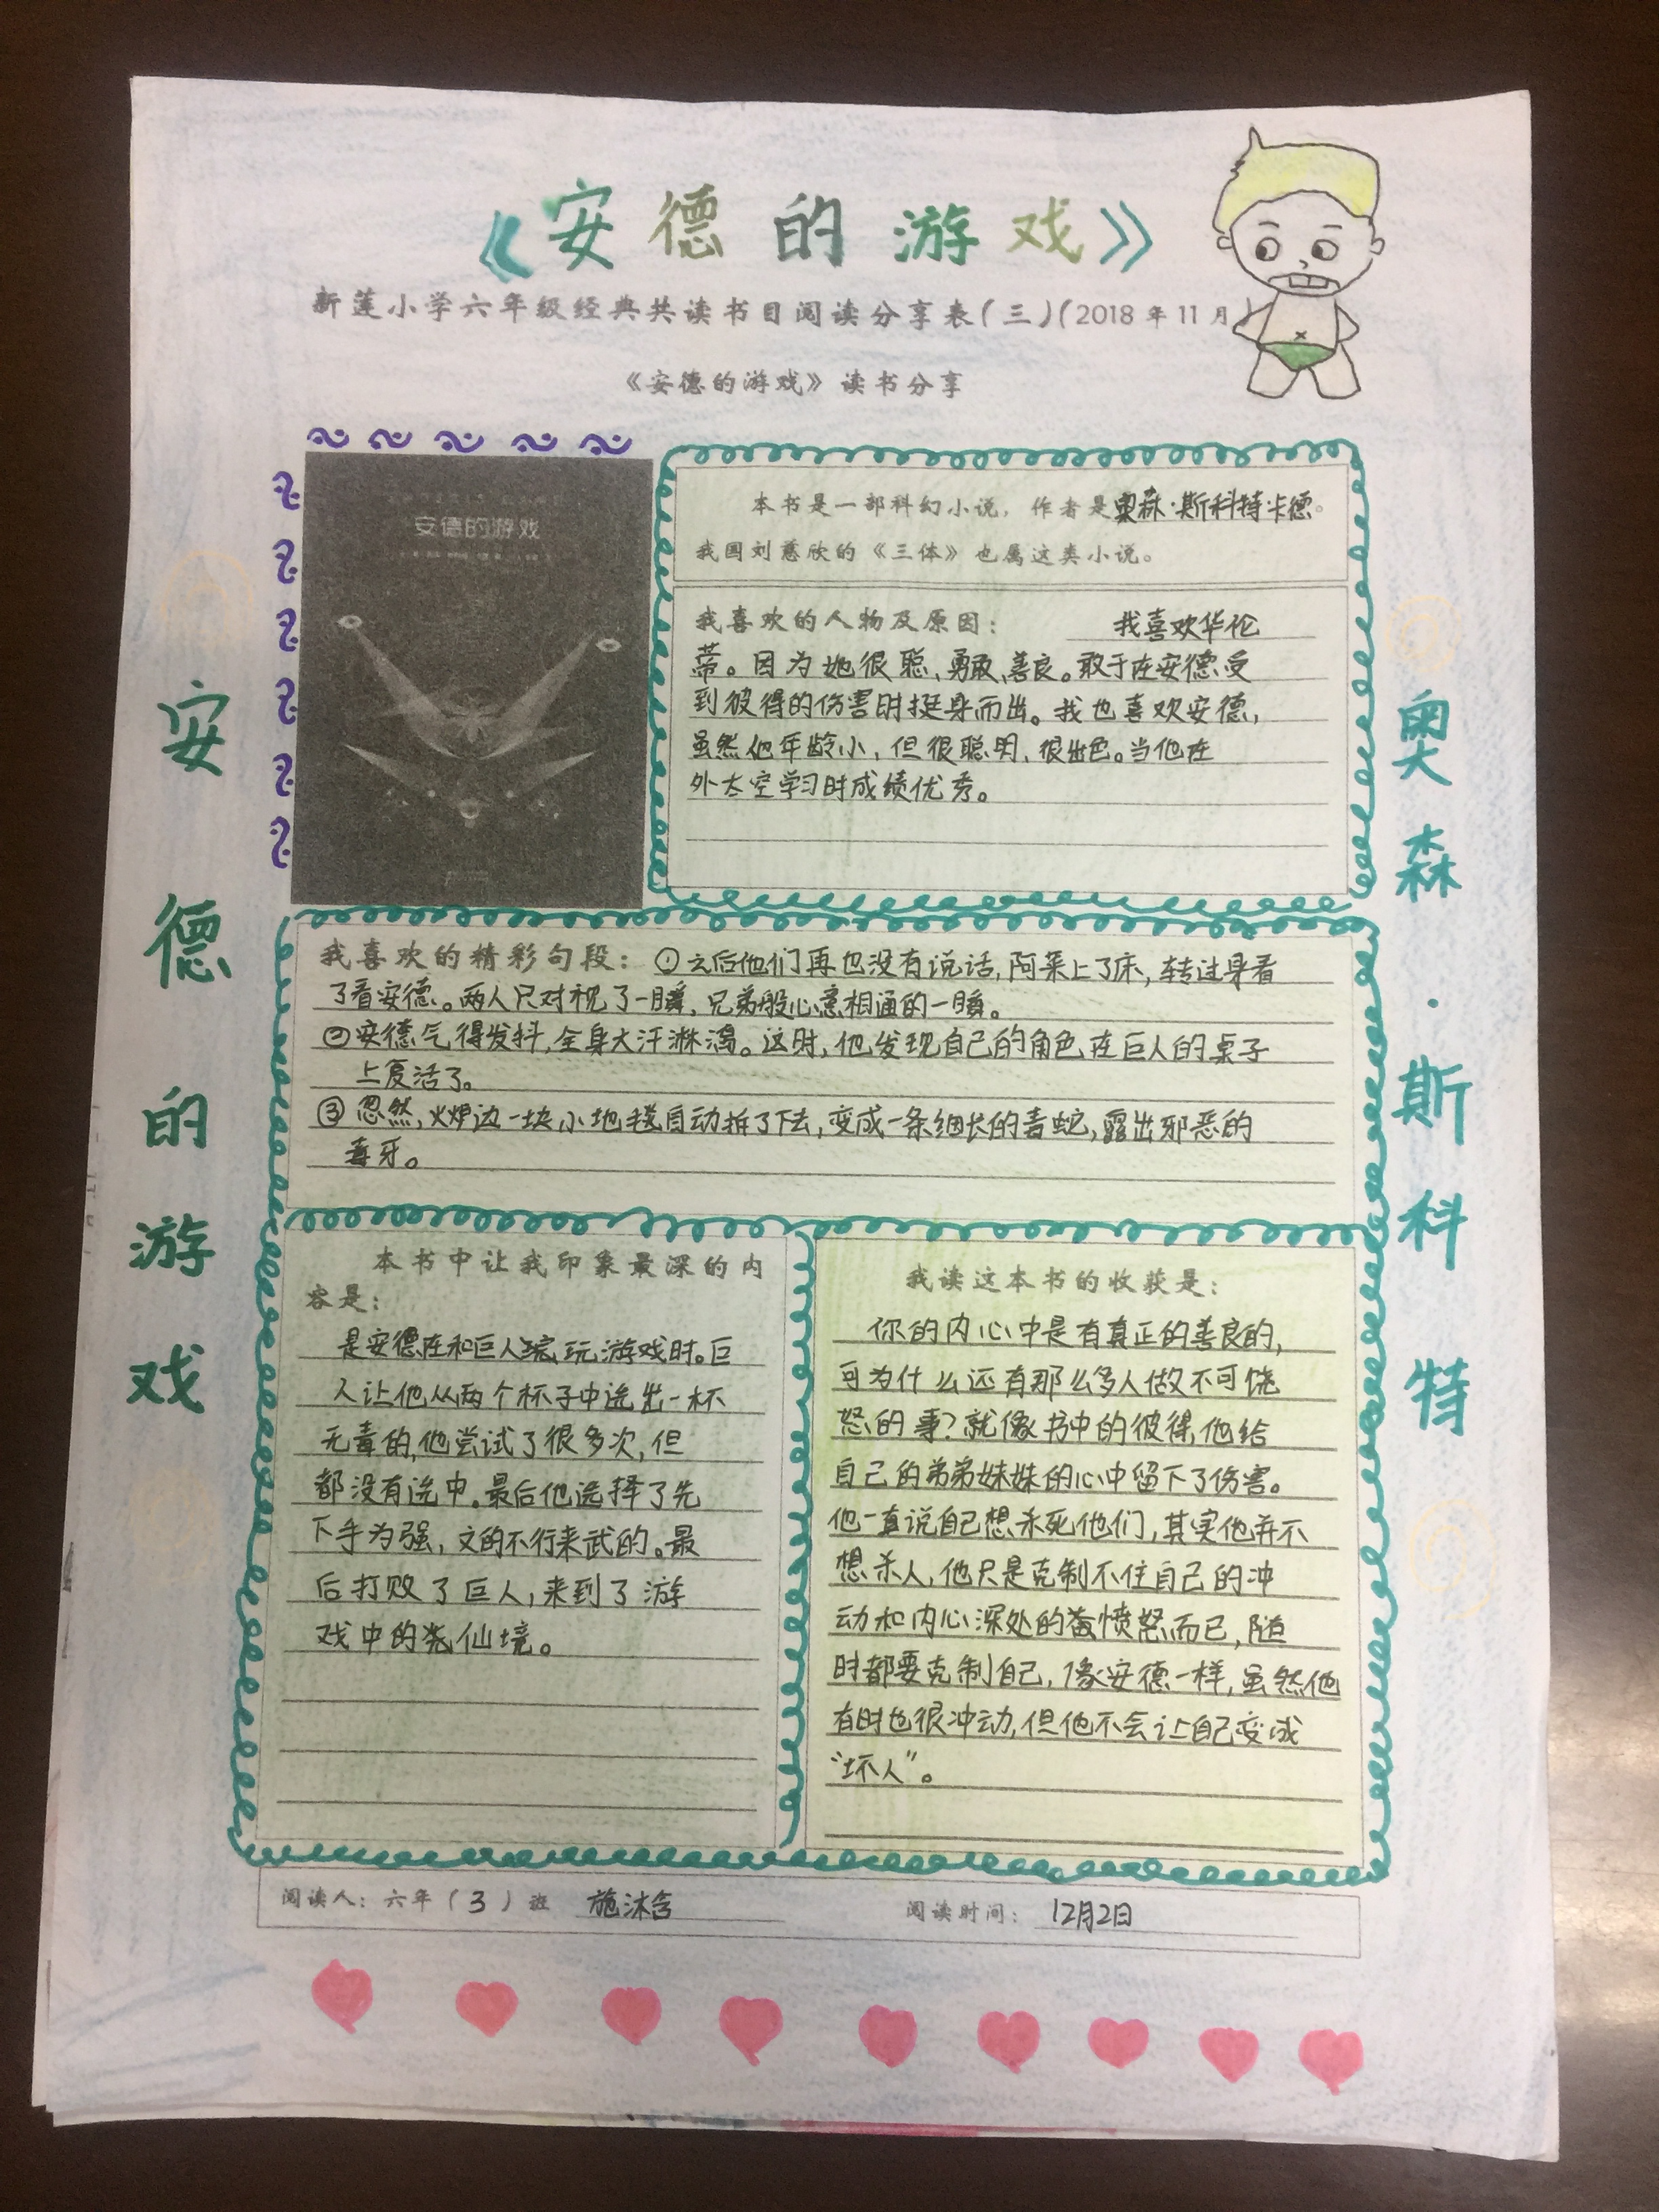 《安德的游戏》
新莲小学六年级经典共读书目阅读分享表(三)(2018年11月)
《安德的游戏》读书分享
安德的游戏
安德的游戏
本书是一部科幻小说，作者是奥森·斯科特卡德。
我国刘慈欣的《三体》也属这类小说。
我喜欢的人物及原因：我喜欢华伦
蒂。因为她很聪、勇敢、善良。敢于在安德受
到彼得的伤害时挺身而出。我也喜欢安德，
虽然他年龄小，但很聪明，很出色。当他在
外太空学习时成绩优秀。
奥森·斯科特
我喜欢的精彩句段：①之后他们再也没有说话，阿莱上了床，转过身看
了看安德。两人只对视了一瞬，兄弟般心意相通的一瞬。
②安德气得发抖，全身大汗淋漓。这时，他发现自己的角色在巨人的桌子
上复活了。
③忽然，火炉边一块小地毯自动拆了下去，变成一条细长的毒蛇，露出邪恶的
毒牙。
本书中让我印象最深的内
容是：
是安德在和巨人玩游戏时。巨
人让他从两个杯子中选出一杯
无毒的，他尝试了很多次，但
都没有选中。最后他选择了先
下手为强，文的不行来武的。最
后打败了巨人，来到了游
戏中的仙境。
我读这本书的收获是：
你的内心中是有真正的善良的，
可为什么还有那么多人做不可饶
怒的事？就像书中的彼得，他给
自己的弟弟妹妹的心中留下了伤害。
他一直说自己想杀死他们，其实他并不
想杀人，他只是克制不住自己的冲
动和内心深处的愤怒而已，随
时都要克制自己，像安德一样，虽然他
有时也很冲动，但他不会让自己变成
“坏人”。
阅读人：六年(3)班 施沐含 阅读时间：12月2日